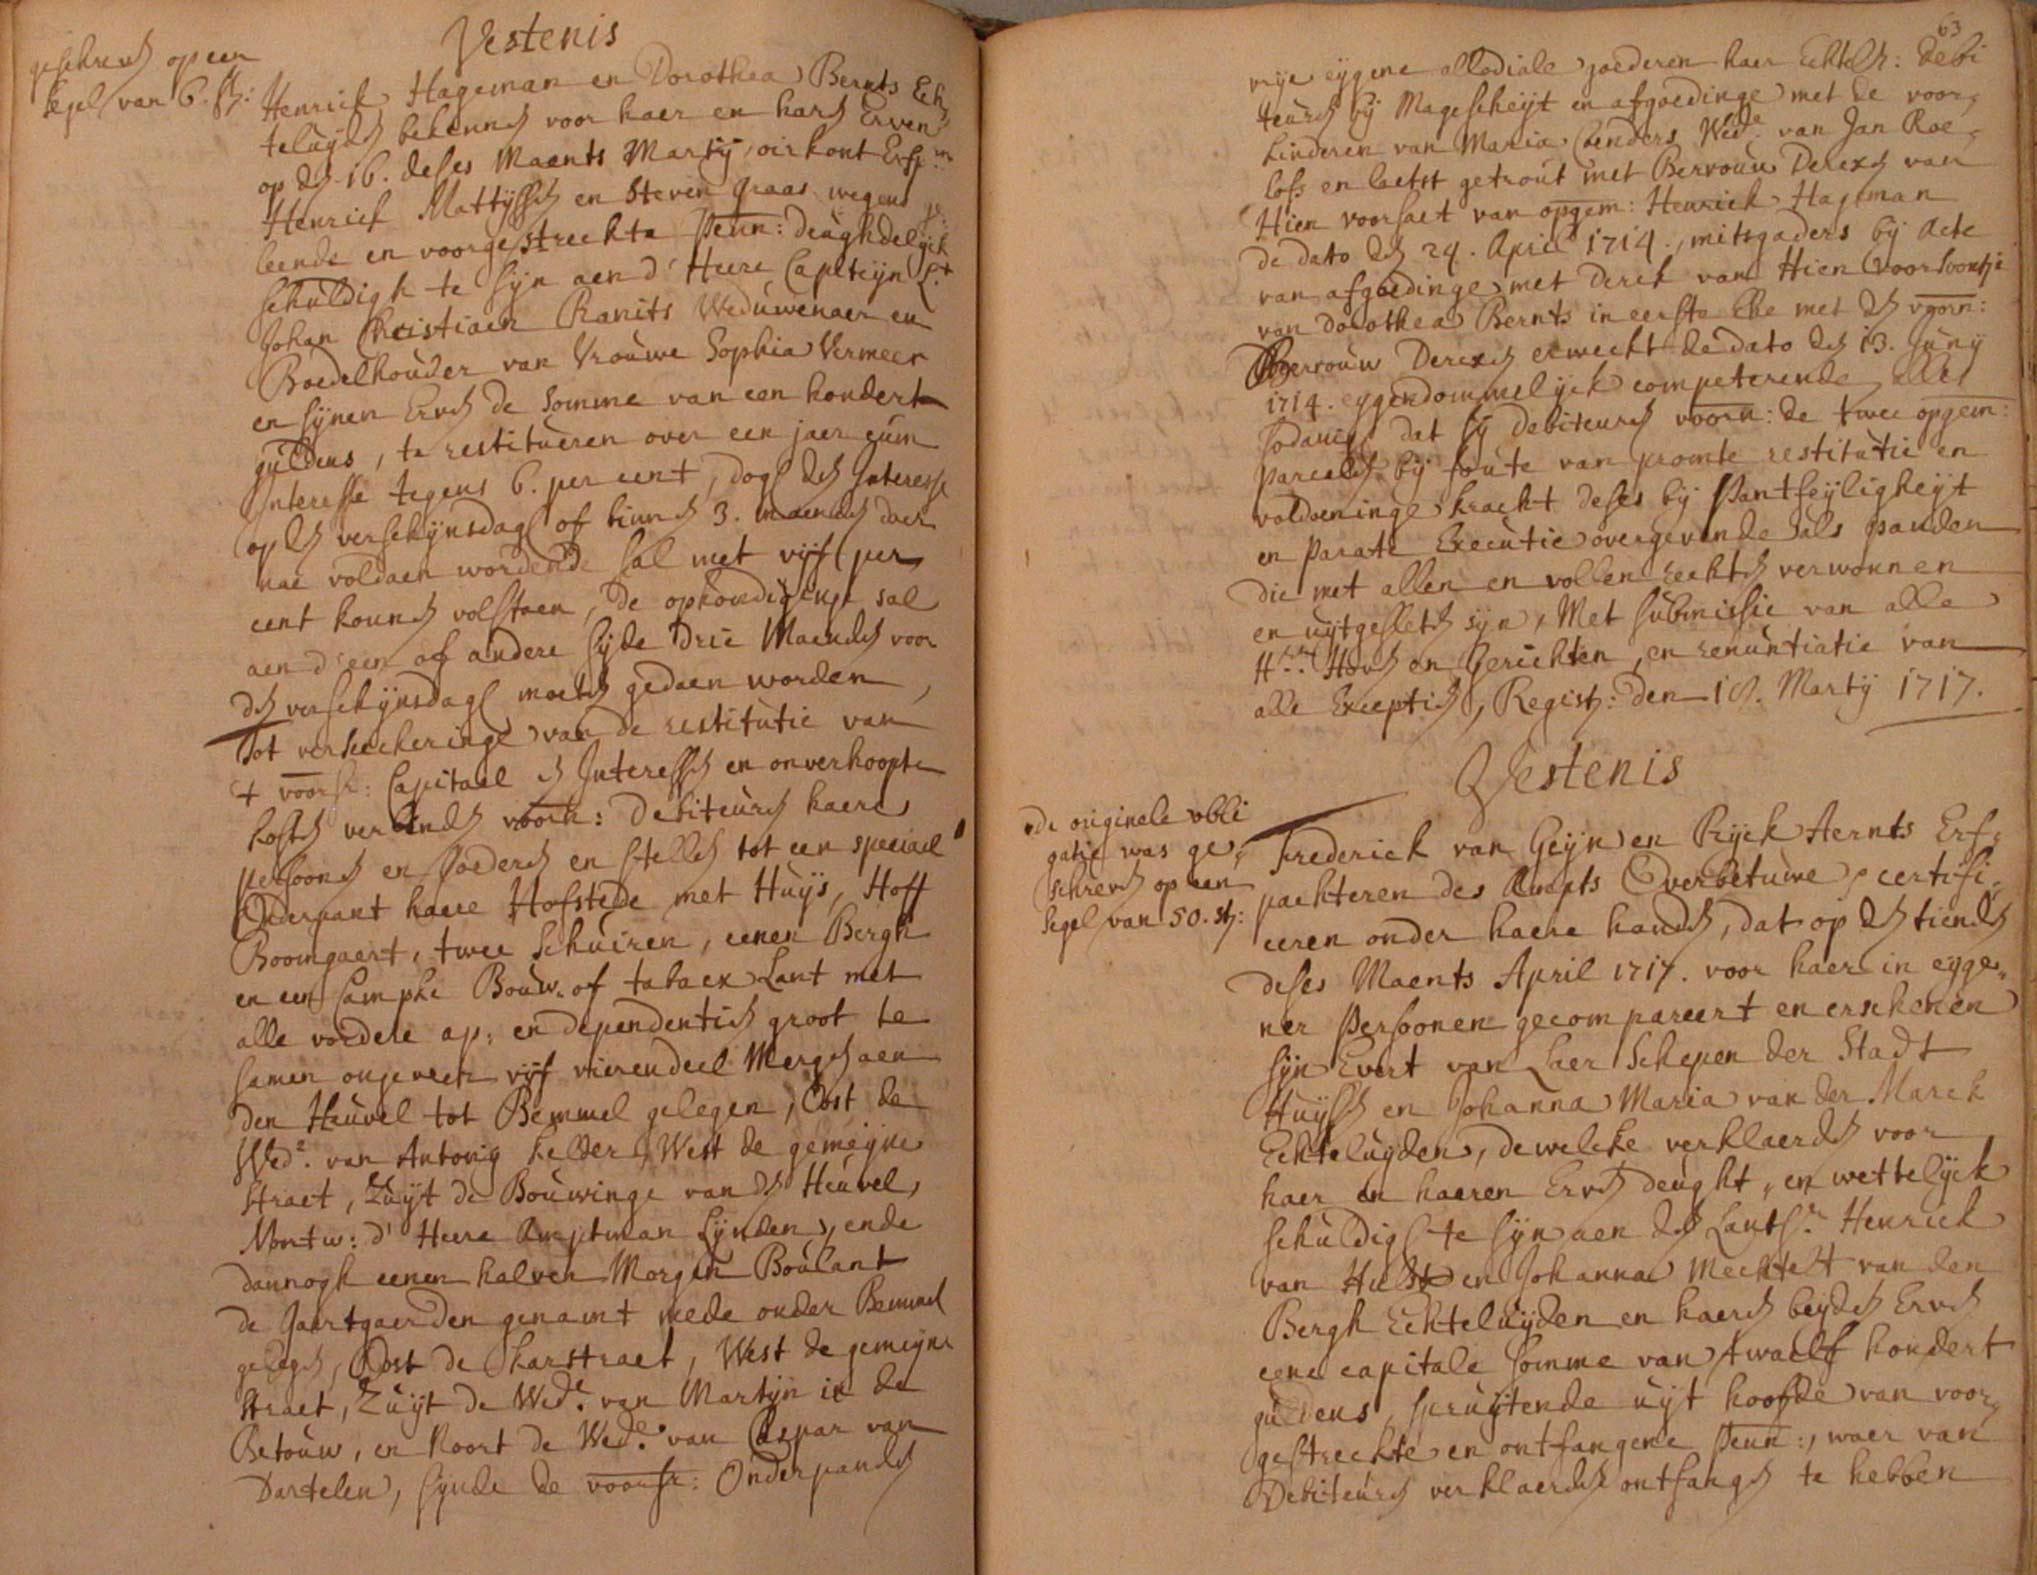 Vestenis
geschreven op een
segel van 6. st:
Henrick Hageman en Dorothea Bernts Ech
teluyden bekennen voor haer en haren Erven
op den 16. deses Maents Marty, oirkont Erfp.ren
Henrick Mattyssen en Steven Graas wegens ge
leende en voorgestreckte Penn: deughdelyck
schuldigh te syn aen d' Heere Capiteyn Lt
Johan Christiaen Ranits Weduwenaer en
Boedelhouder van Vrouwe Sophia Vermeer
en synen Erven de Somme van een hondert
guldens, te restitueren over een jaer cum
Interesse tegens 6. per cent, dog den Interesse
op den verschynsdag of binnen 3. maenden daer
nae voldaen wordende sal met vyf per
cent konnen volstaen, de opkondiginge sal
aen d' een of andere syde drie Maenden voor
den verschynsdag moeten gedaen worden,
Tot versekeringe van de restitutie van
t voors: Capitael en Interessen en onverhoopte
kosten verbinden voorn: Debiteuren haere
persoonen en Goederen en stellen tot een speciael
Onderpant haere Hofstede met Huys, Hoff
Boomgaert, twee Schuiren, eenen Bergh
en een Campke Bouw- of taback Lant met
alle vordere ap: en dependentien groot te
samen ongeveer vyf vierendeel Mergen aen
den Heuvel tot Bemmel gelegen, Oost de
Wede. van Antony Kelder, West de gemeyne
straet, Zuyt de Bouwinge van den Heuvel,
Nortw: d' Heere Amptman Lynden, ende
dannogh eenen halven Morgen Boulant
de Gaertgaerden genamt mede onder Bemmel
gelegen, Oost de Karstraet, West de gemeyne
straet, Zuyt de Wede. van Martyn in de
Betouw, en Noort de Wede. van Caspar van
Dartelen, synde de voors: Onderpanden
63
vrye eygene allodiale goederen haer Echtel: Debi
teuren by Magescheyt en afgoedinge met de voor-
kinderen van Maria Lenders Wede. van Jan Roe-
lofs en laetst getrout met Bervouw Dercxen van
Hien voorsaet van opgem: Henrick Hageman
de dato den 24. April 1714, mitsgaders by Acte
van afgoedinge met Derck van Hien voorsoontje
van Dorothea Bernts in eerste Ehe met den voorn:
Bervouw Dercxen erweckt de dato den 13. Juny
1714. eygendommelyck competerende, alles
sodanig dat sy Debiteuren voorn: de twee opgem:
parcelen by foute van promte restitutie en
voldoeninge kracht deses by Pantseyligheyt
en Parate Executie overgevende als panden
die met allen en vollen rechten verwonnen
en uytgesleten syn, Met submissie van alle
Hren Hoven en Gerichten, en renuntiatie van
alle Exceptien, Regist: den 18. Marty 1717.
Vestenis
de originele obli
gatie was ge-
schreven op een
segel van 50. st:
Frederick van Geyn en Ryck Aernts Erf-
pachteren des Ampts Overbetuwe certifi-
ceren onder haere handen, dat op den tienden
deses Maents April 1717. voor haer in eyge-
ner Persoonen gecompareert en erschenen
syn Evert van Laer Schepen der Stadt
Huyssen en Johanna Maria van der Marck
Echteluyden, dewelcke verklaerden voor
haer en haeren Erven deught, en wettelyck
schuldig te syn aen den Lants.r Henrick
van Hulst en Johanna Mechtelt van den
Bergh Echteluyden en haeren beyden Erven
eene capitale somme van twaelf hondert
guldens, spruytende uyt hoofde van voor-
gestreckte en ontfangene Penn:, waer van
Debiteuren verklaerden ontfangen te hebben